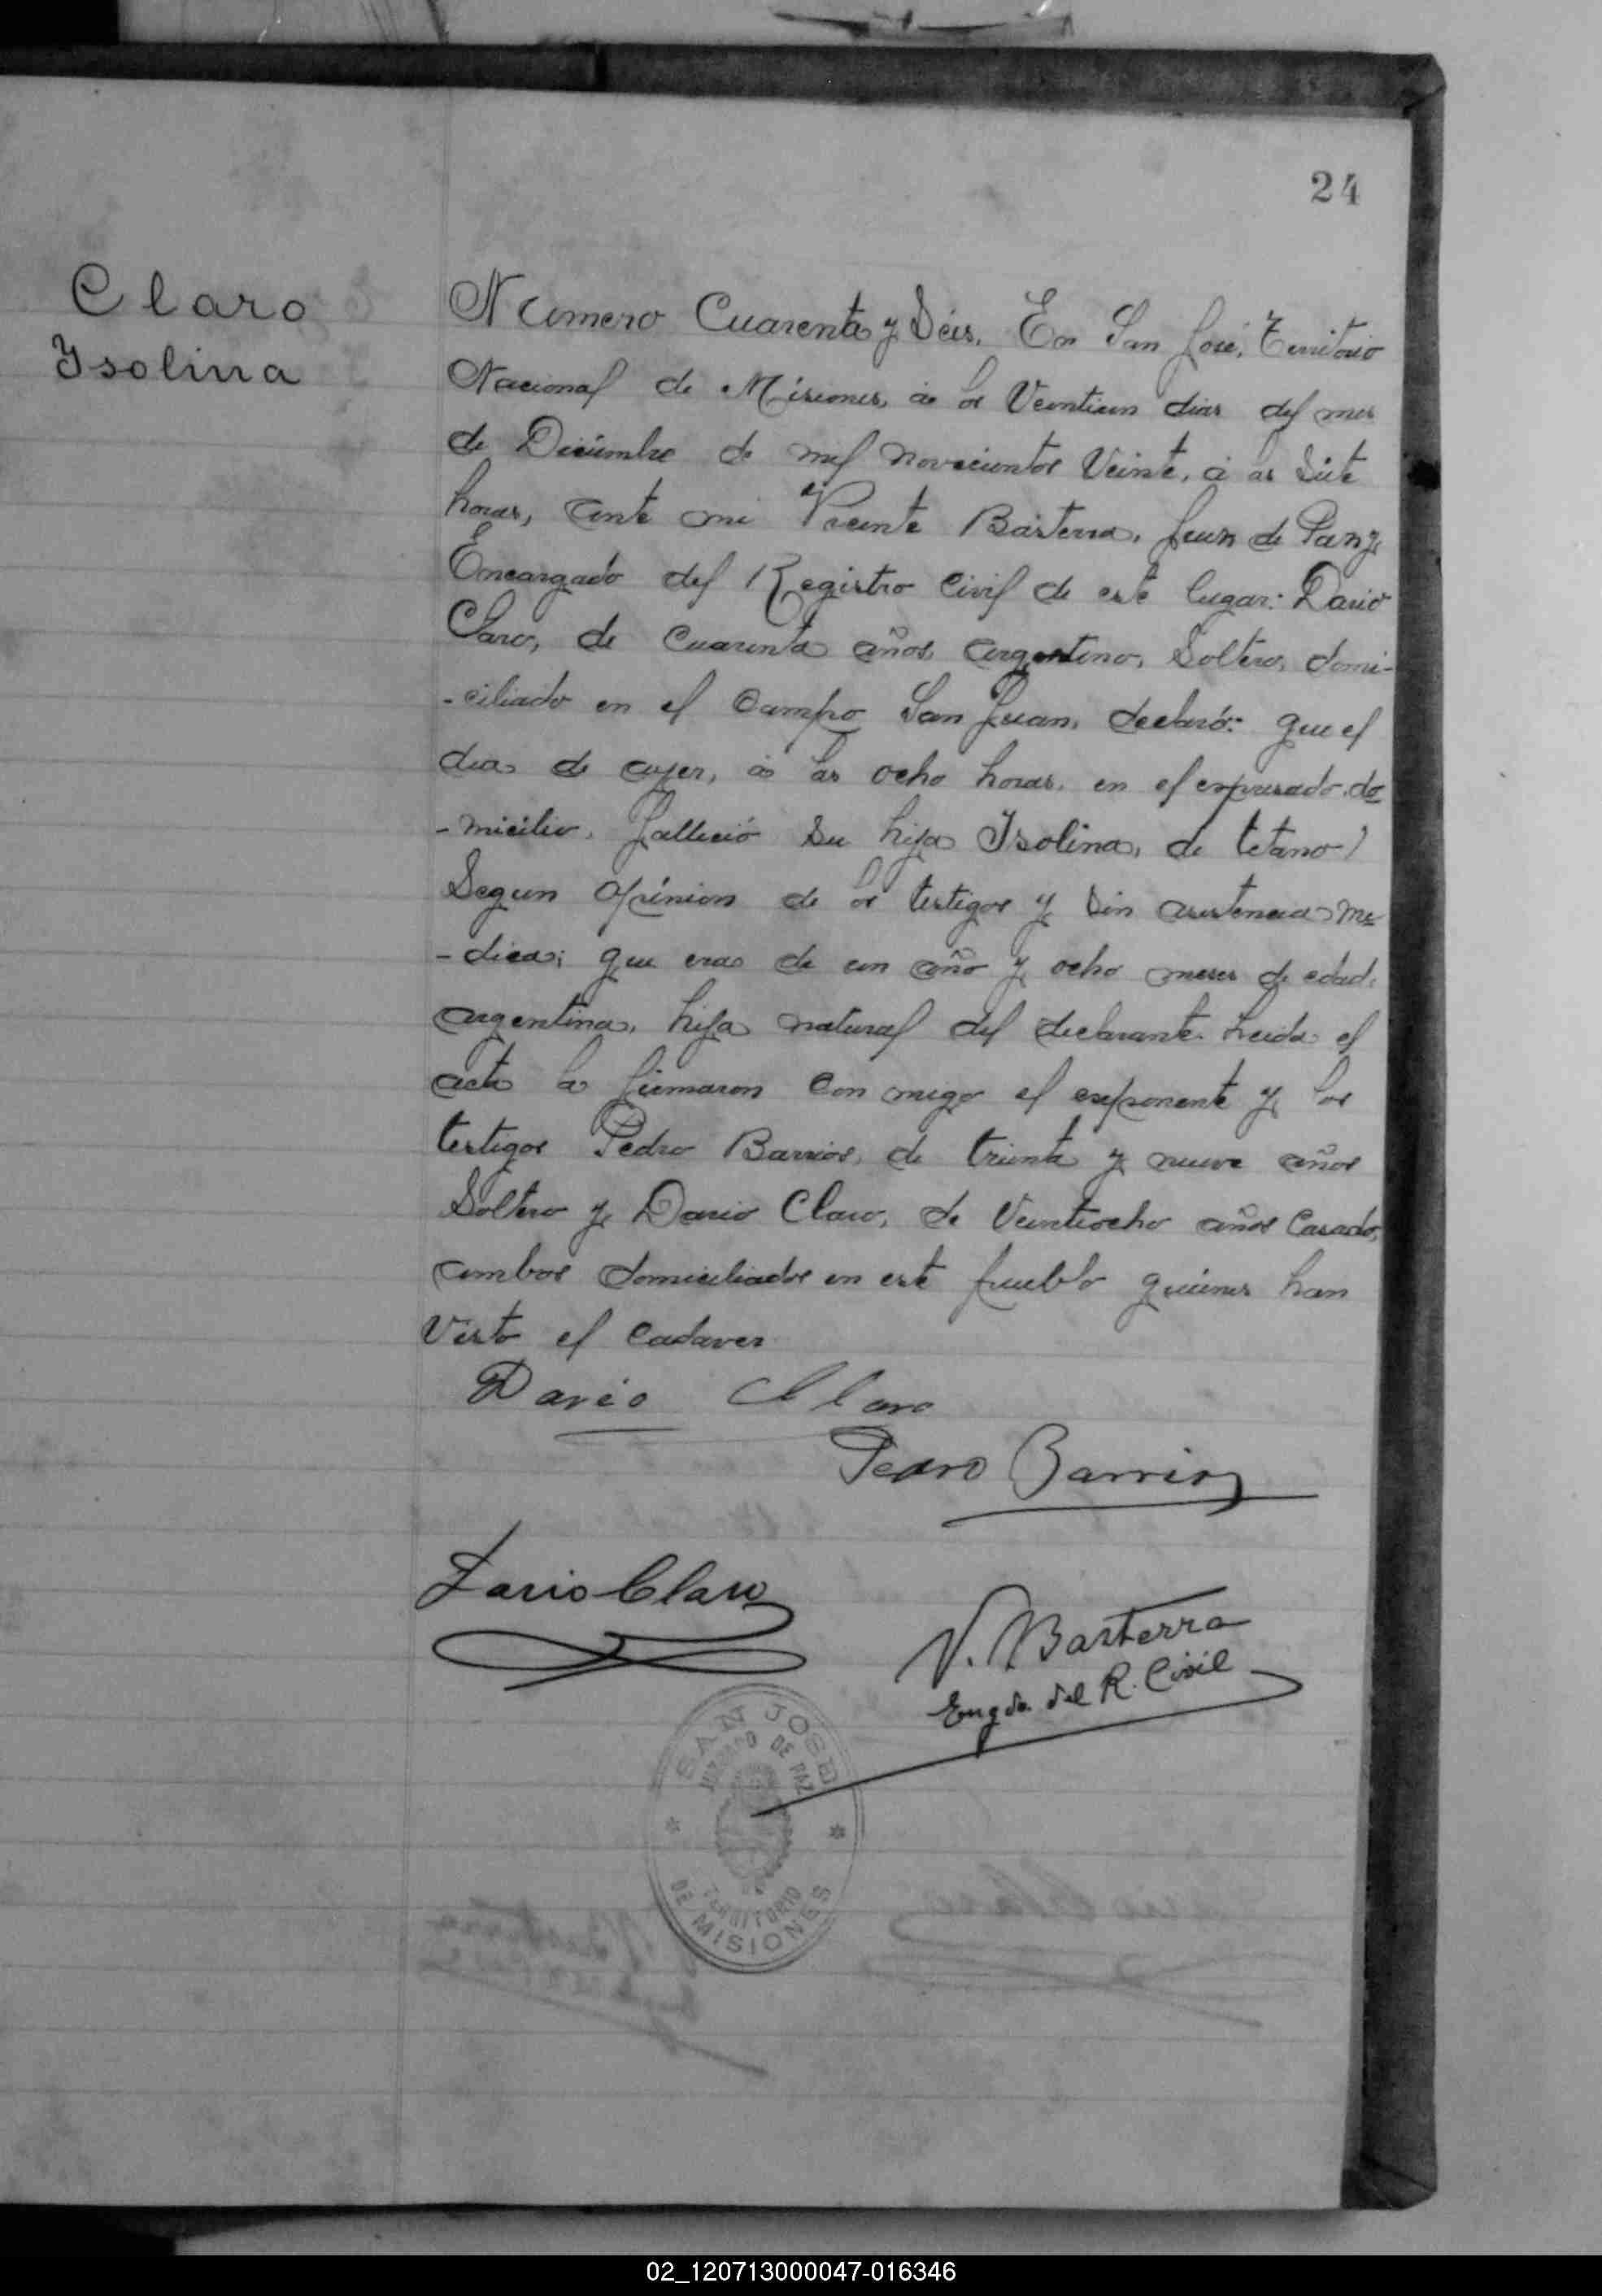 24
Claro
Isolina
Numero Cuarenta y Seis. En San José, Territorio
Nacional de Misiones, á los Veintiun dias del mes
de Diciembre de mil novecientos Veinte, á las Siete
horas, ante mi Vicente Basterra, Juez de Paz y
Encargado del Registro Civil de este lugar: Dario
Claro, de Cuarenta años, argentino, Soltero, domi-
-ciliado en el Campo San Juan, declaró: que el
dia de ayer, á las ocho horas, en el expresado do
-micilio, falleció su hija Isolina, de tetano
Segun opinion de los testigos y sin asistencia me
-dica; que era de un año y ocho meses de edad,
argentina, hija natural del declarante. Leida el
acta la firmaron con migo el exponente y los
testigos Pedro Barrios, de treinta y nueve años
Soltero y Dario Claro, de Veintiocho años Casado,
ambos domiciliados en este pueblo quienes han
Visto el Cadaver
Dario Claro
Pedro Barrios
Dario Claro
V. Basterra
Engdo. del R. Civil
SAN JOSE
JUZGADO DE PAZ
TERRITORIO
DE MISIONES
02_120713000047-016346